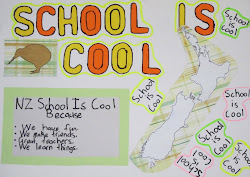 SCHOOL IS
COOL
School
is
cool
NZ School Is Cool
Because
• We have fun.
• We make friends.
• Great teachers.
• We learn things.
School
is
Cool
School
is
cool
School
is
Cool
School
is
Cool
School
is
Cool